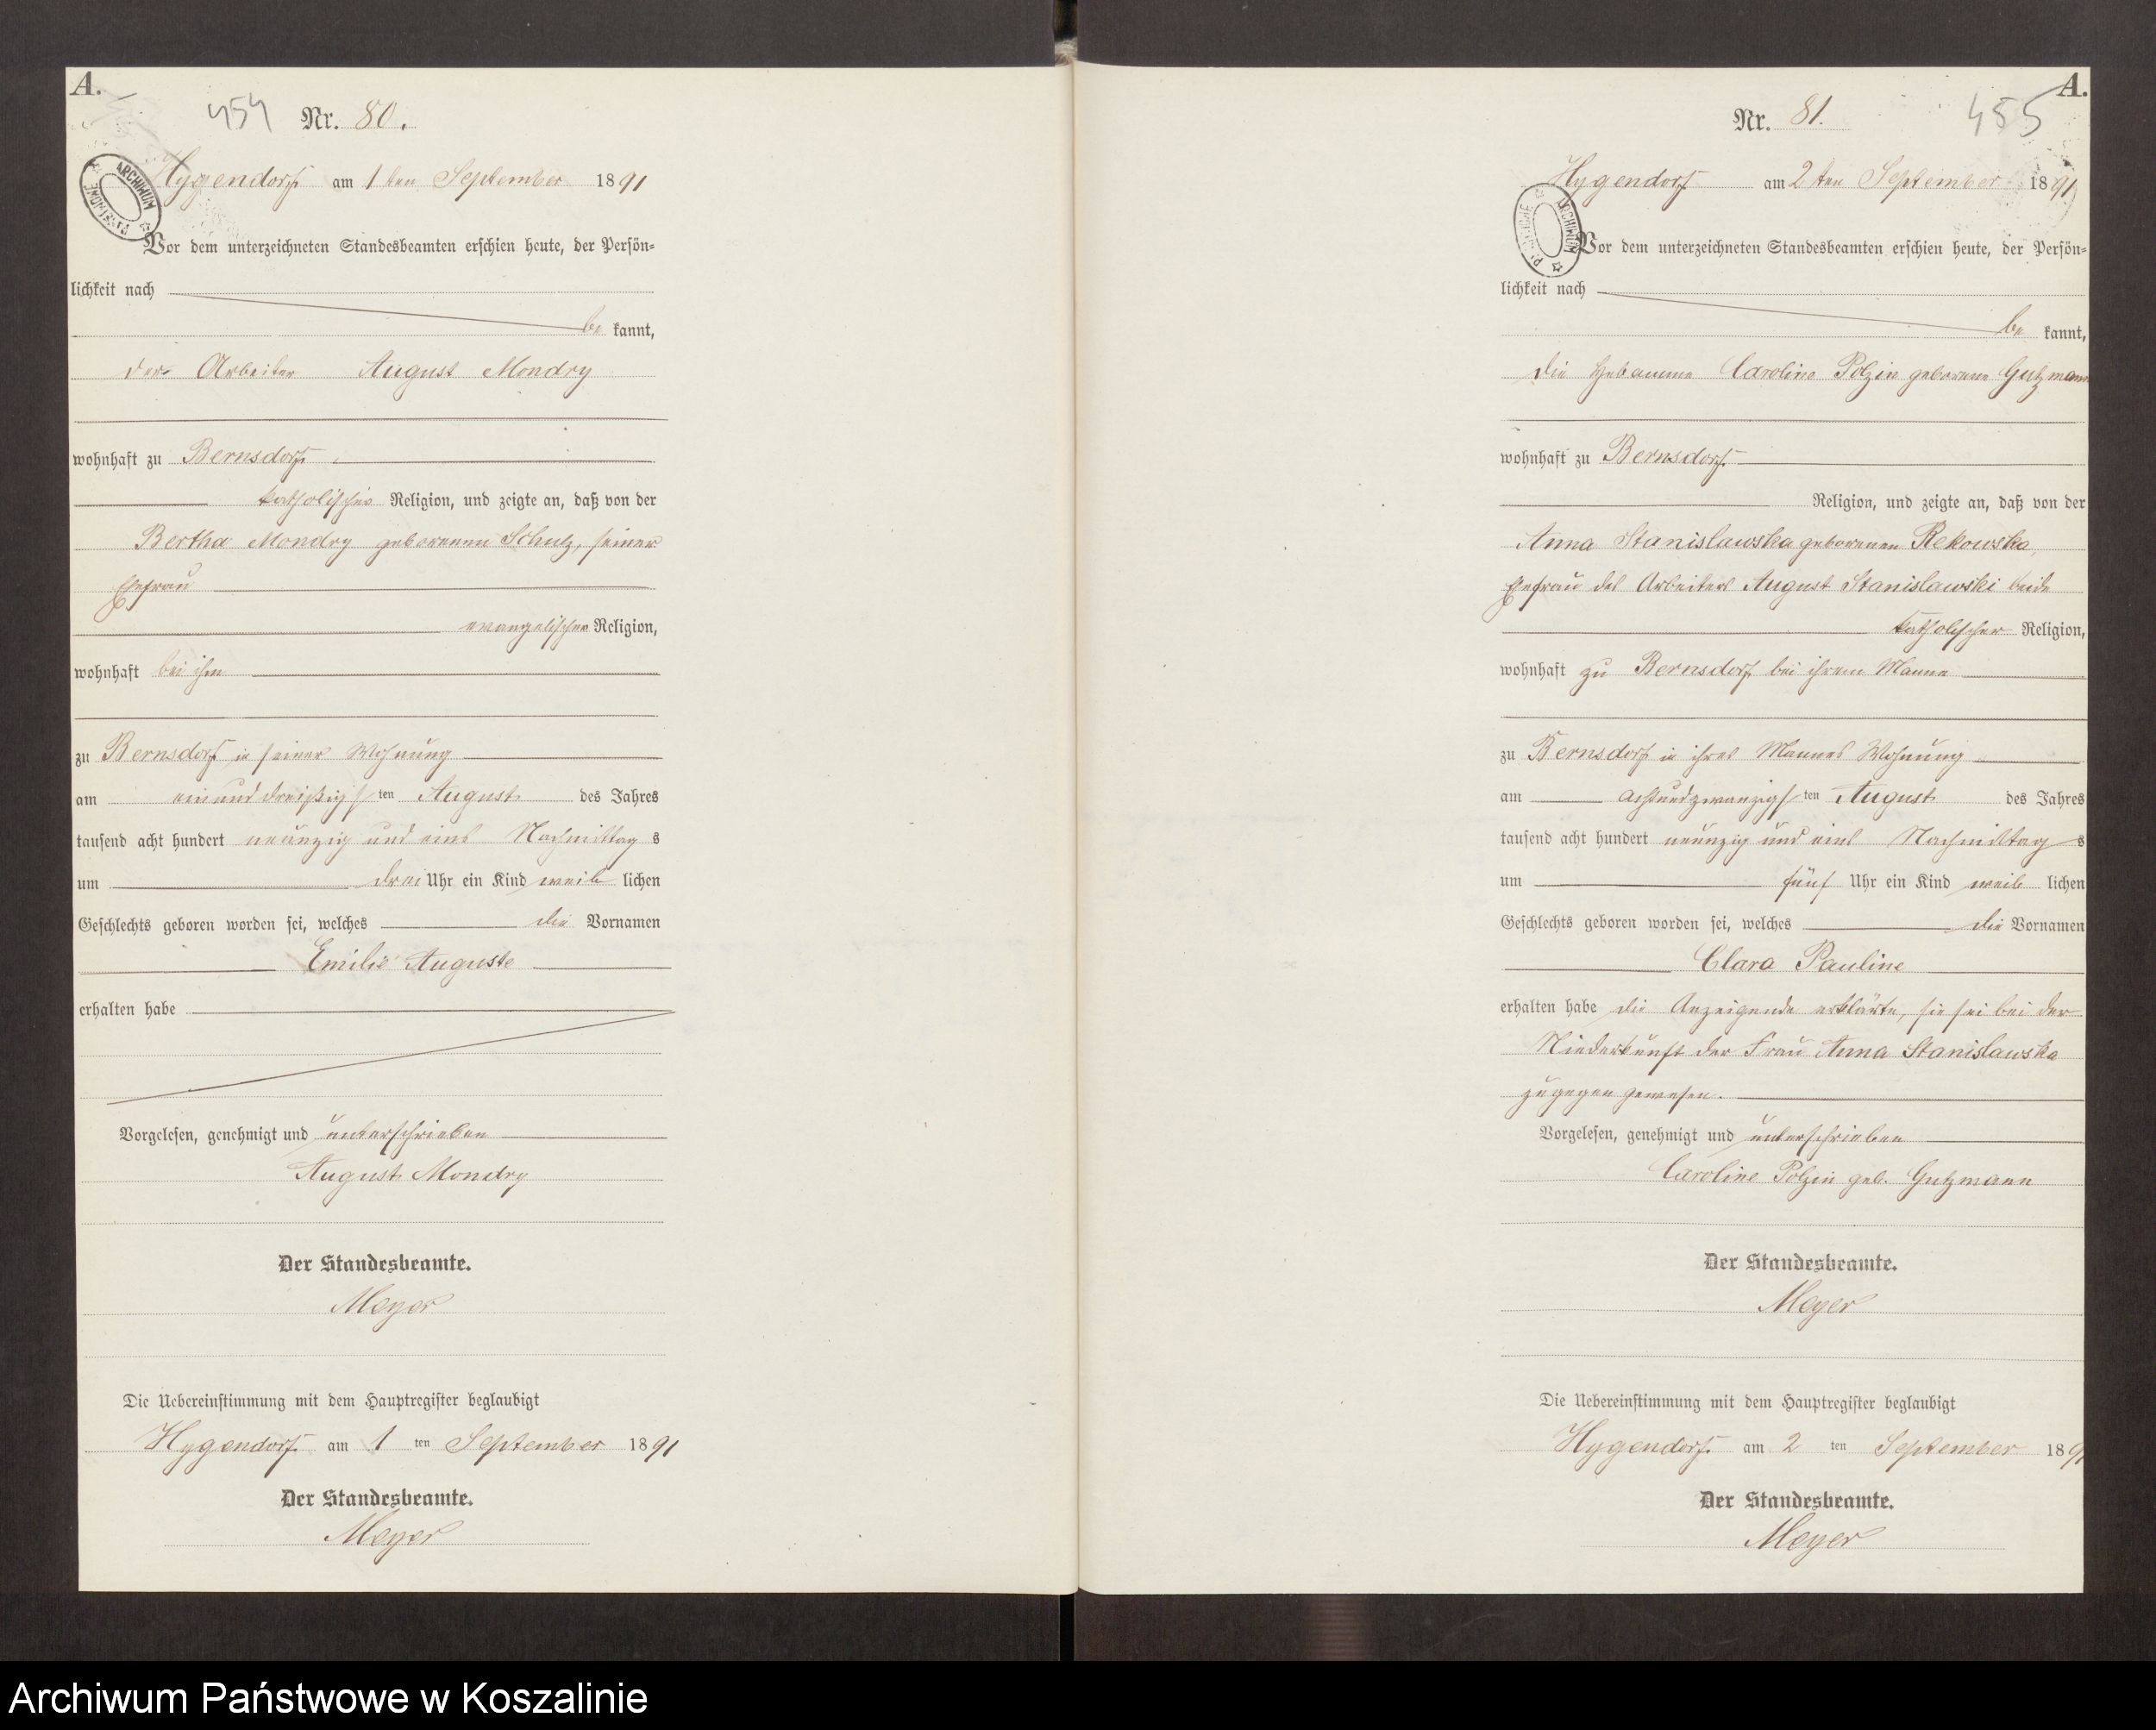 A.
454 Nr. 80.
Hygendorf am 1ten September 1891
ARCHIWUM
Vor dem unterzeichneten Standesbeamten erschien heute, der Persön=
lichkeit nach
be kannt,
der Arbeiter August Mondry
wohnhaft zu Bernsdorf
katholischer Religion, und zeigte an, daß von der
Bertha Mondry geborenen Schulz, seiner
Ehefrau
evangelischer Religion,
wohnhaft bei ihm
zu Bernsdorf in seiner Wohnung
am einunddreißigsten August des Jahres
tausend acht hundert neunzig und eins Nachmittag s
um drei Uhr ein Kind weib lichen
Geschlechts geboren worden sei, welches die Vornamen
Emilie Auguste
erhalten habe
Vorgelesen, genehmigt und unterschrieben
August Mondry
Der Standesbeamte.
Meyer
Die Uebereinstimmung mit dem Hauptregister beglaubigt
Hygendorf am 1 ten September 1891
Der Standesbeamte.
Meyer
A.
Nr. 81. 455
Hygendorf am 2ten September 1891
ARCHIWUM
Vor dem unterzeichneten Standesbeamten erschien heute, der Persön=
lichkeit nach
be kannt,
die Hebamme Caroline Polzin geborene Gutzmann
wohnhaft zu Bernsdorf
Religion, und zeigte an, daß von der
Anna Stanislawska geborenen Rekowska,
Ehefrau des Arbeiters August Stanislawski beide
katholischer Religion,
wohnhaft zu Bernsdorf bei ihrem Manne
zu Bernsdorf in ihres Mannes Wohnung
am achtundzwanzigsten August des Jahres
tausend acht hundert neunzig und eins Nachmittag s
um fünf Uhr ein Kind weib lichen
Geschlechts geboren worden sei, welches die Vornamen
Clara Pauline
erhalten habe die Anzeigende erklärte, sie sei bei der
Niederkunft der Frau Anna Stanislawska
zugegen gewesen.
Vorgelesen, genehmigt und unterschrieben
Caroline Polzin geb. Gutzmann
Der Standesbeamte.
Meyer
Die Uebereinstimmung mit dem Hauptregister beglaubigt
Hygendorf am 2 ten September 189
Der Standesbeamte.
Meyer
Archiwum Państwowe w Koszalinie